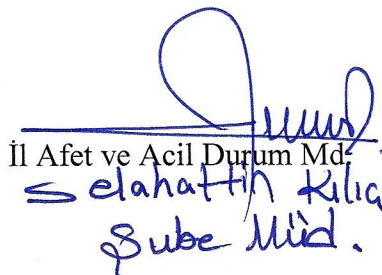 İl Afet ve Acil Durum Md.
Selahattin Kılıç
Şube Müd.